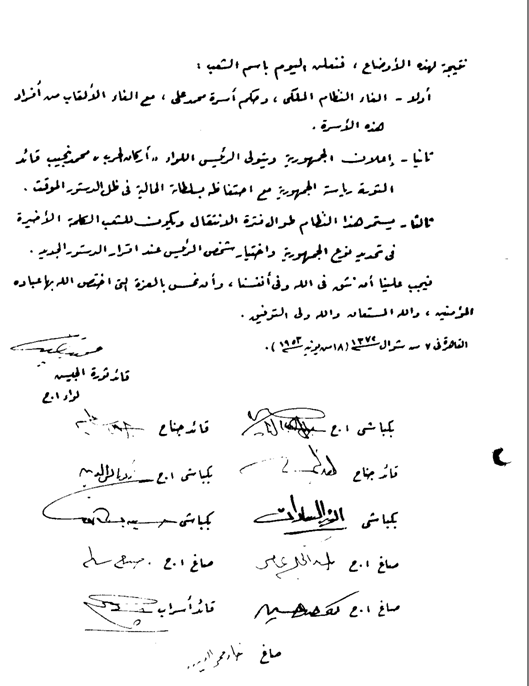 نتيجة لهذه الأوضاع ، فنعلن اليوم باسم الشعب :
أولا - الغاء النظام الملكى ، وحكم أسرة محمد على ، مع الغاء الألقاب من أفراد
هذه الأسرة .
ثانيا - إعلان الجمهورية ويتولى الرئيس اللواء « أركان حرب » محمد نجيب قائد
الثورة رياسة الجمهورية مع احتفاظه بسلطاته الحالية فى ظل الدستور المؤقت .
ثالثا - يستمر هذا النظام طوال فترة الانتقال ويكون للشعب الكلمة الأخيرة
فى تحديد نوع الجمهورية واختيار شخص الرئيس عند اقرار الدستور الجديد .
فيجب علينا أن نثق فى الله وفى أنفسنا ، وأن نحس بالعزة التى اختص الله بها عباده
المؤمنين ، والله المستعان والله ولى التوفيق .
القاهرة فى ٧ من شوال ١٣٧٢ ( ١٨ من يونيه ١٩٥٣ ) .
محمد نجيب
قائد ثورة الجيش
لواء ا٠ح
بكباشى ا٠ح قائد جناح
قائد جناح بكباشى ا٠ح
بكباشى أنور السادات بكباشى
صاغ ا٠ح عبد الحكيم عامر صاغ ا٠ح صلاح سالم
صاغ ا٠ح قائد أسراب
صاغ خالد محيى الدين